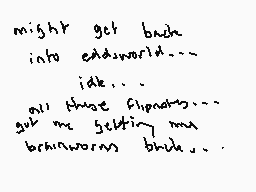 might get back
into eddsworld...
idk...
all these flipnotes...
got me getting ma
brainworms back...